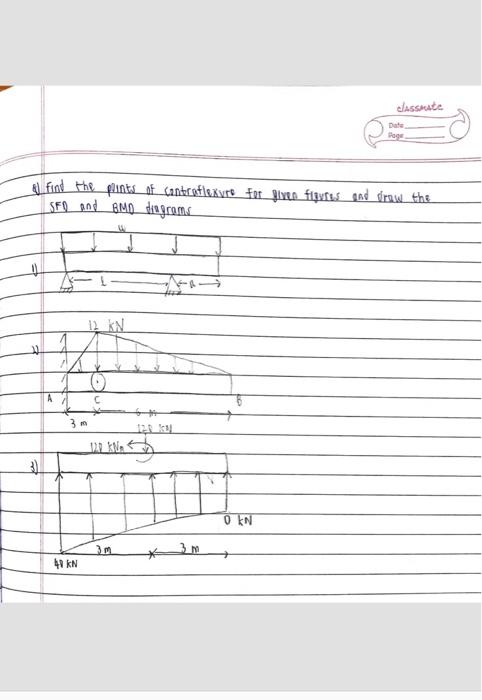 classmate
Date
Page
Q) Find the points of contraflexure for given figures and draw the
SFD and BMD diagrams
w
1)
L a
12 kN
2)
A C B
3 m 6 m
120 kN
120 kNm
3)
0 kN
3m 3 m
40 kN